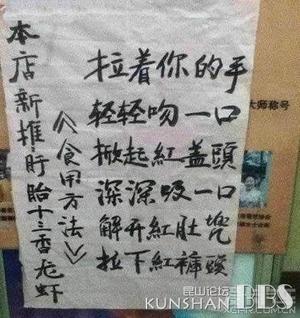 本店新推盱眙十三香龙虾
《食用方法》
拉着你的手
轻轻吻一口
掀起紅盖頭
深深吸一口
解开紅肚兜
拉下紅褲頭
大师称号
昆山论坛
KUNSHAN BBS